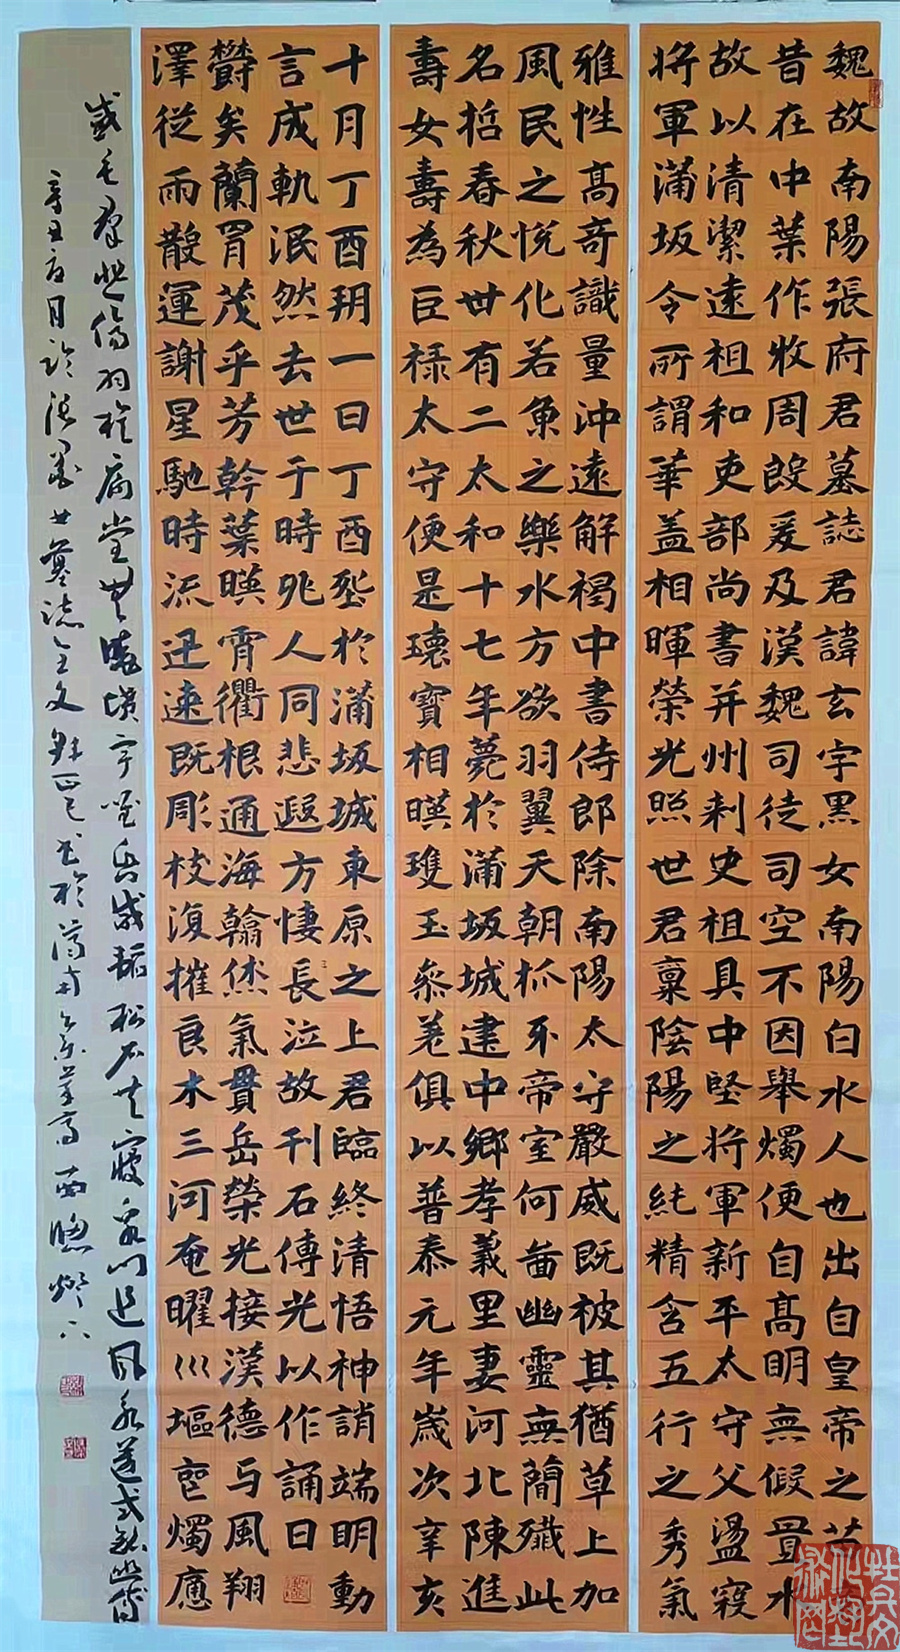 魏故南陽張府君墓誌君諱玄字黑女南陽白水人也出自皇帝之苗
昔在中葉作牧周殷爰及漢魏司徒司空不因舉燭便自高明無假置水
故以清潔遠祖和吏部尚書并州刾史祖具中堅將軍新平太守父盪寇
將軍蒲坂令所謂華蓋相暉榮光照世君稟陰陽之純精含五行之秀氣
雅性高奇識量沖遠解褐中書侍郎除南陽太守嚴威既被其猶草上加
風民之悅化若魚之樂水方欲羽翼天朝抓牙帝室何啚幽靈無簡殲此
名哲春秋世有二太和十七年薨於蒲坂城建中鄉孝義里妻河北陳進
壽女壽為巨祿太守便是瓌寶相暎瓊玉叅差俱以普泰元年歲次辛亥
十月丁酉朔一日丁酉塟於蒲坂城東原之上君臨終清悟神誚端明動
言成軌泯然去世于時兆人同悲遐方悽長泣故刊石傳光以作誦曰
欝矣蘭胄茂乎芳幹葉暎霄衢根通海翰烋氣貫岳榮光接漢德与風翔
澤從雨散運謝星馳時流迅速既彫枝復摧良木三河奄曜巛塸㱾燭應
感毛羣悲傷羽族扃堂無曉墳宇唯昏咸韜松石共寢泉門追風永邁式銘幽傳
辛丑夏月臨張黑女墓誌全文 書於濟南 西窗燈下